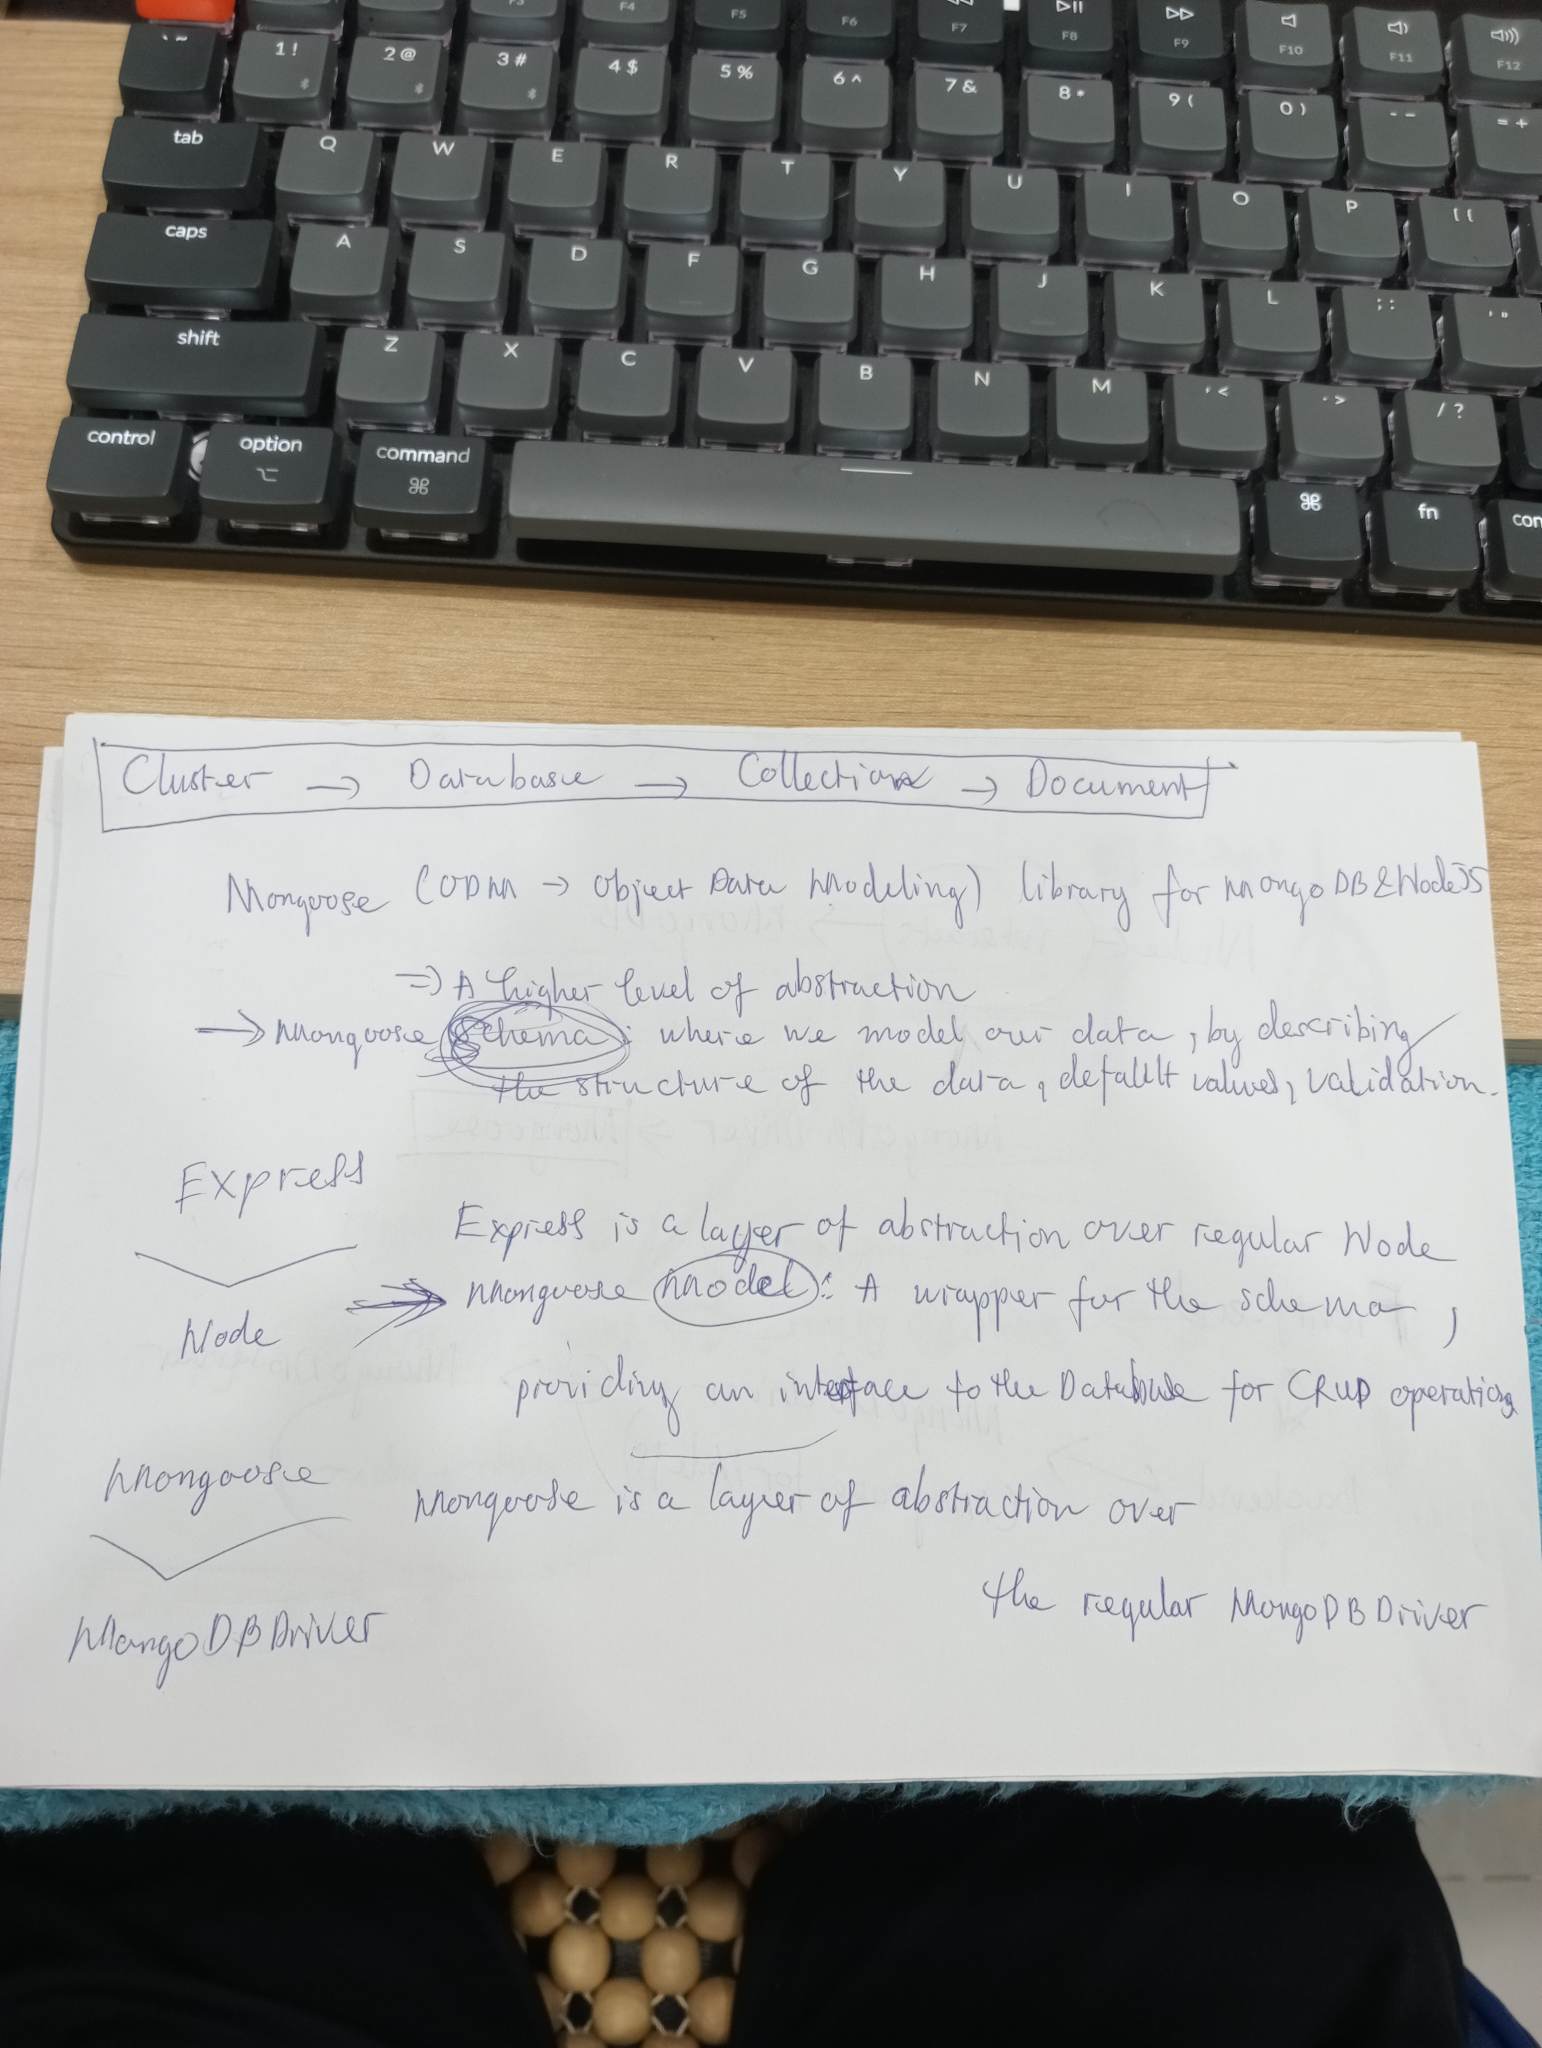 F3 F4 F5 F6 F7 F8 F9 F10 F11 F12
` ~ 1 ! 2 @ 3 # 4 $ 5 % 6 ^ 7 & 8 * 9 ( 0 ) - – = +
tab Q W E R T Y U I O P [ {
caps A S D F G H J K L ; : ' "
shift Z X C V B N M , < . > / ?
control option command fn con
Cluster → Database → Collection → Document
Mongoose (ODM → Object Data Modeling) library for MongoDB & NodeJS
=> A higher level of abstraction
→ Mongoose Schema : where we model our data, by describing
the structure of the data, default values, validation.
Express
Express is a layer of abstraction over regular Node
→ Mongoose Model : A wrapper for the schema,
Node
providing an interface to the Database for CRUD operations
Mongoose
Mongoose is a layer of abstraction over
the regular MongoDB Driver
MongoDB Driver